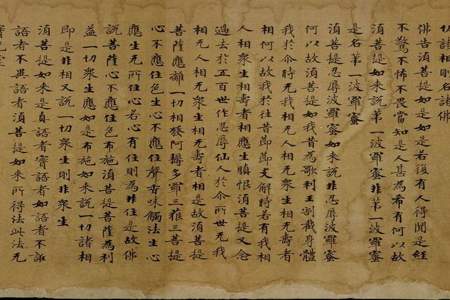 切諸相則名諸佛
佛告湏菩提如是如是若復有人得聞是經
不驚不怖不畏當知是人甚為希有何以故
湏菩提如來說第一波羅蜜非第一波羅蜜
是名第一波羅蜜
湏菩提忍辱波羅蜜如來說非忍辱波羅蜜
何以故湏菩提如我昔為歌利王割截身體
我於尒時无我相无人相无眾生相无壽者
相何以故我於往昔即即支解時若有我相
人相眾生相壽者相應生瞋恨湏菩提又念
過去於五百世作忍辱仙人於尒所世无我
相无人相无眾生相无壽者相是故湏菩提
菩薩應離一切相發阿耨多羅三藐三菩提
心不應住色生心不應住聲香味觸法生心
應生无所住心若心有住則為非住是故佛
說菩薩心不應住色布施湏菩提菩薩為利
益一切眾生應如是布施如來說一切諸相
即是非相又說一切眾生則非眾生
湏菩提如來是真語者實語者如語者不誑
語者不異語者湏菩提如來所得法此法无